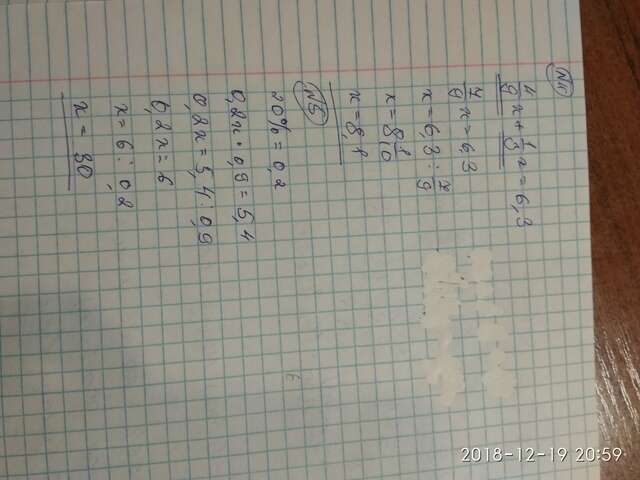 №4
4/9 x + 1/3 x = 6,3
7/9 x = 6,3
x = 6,3 : 7/9
x = 8 1/10
x = 8,1
№5
20% = 0,2
0,2x · 0,9 = 5,4
0,2x = 5,4 : 0,9
0,2x = 6
x = 6 : 0,2
x = 30
2018-12-19 20:59